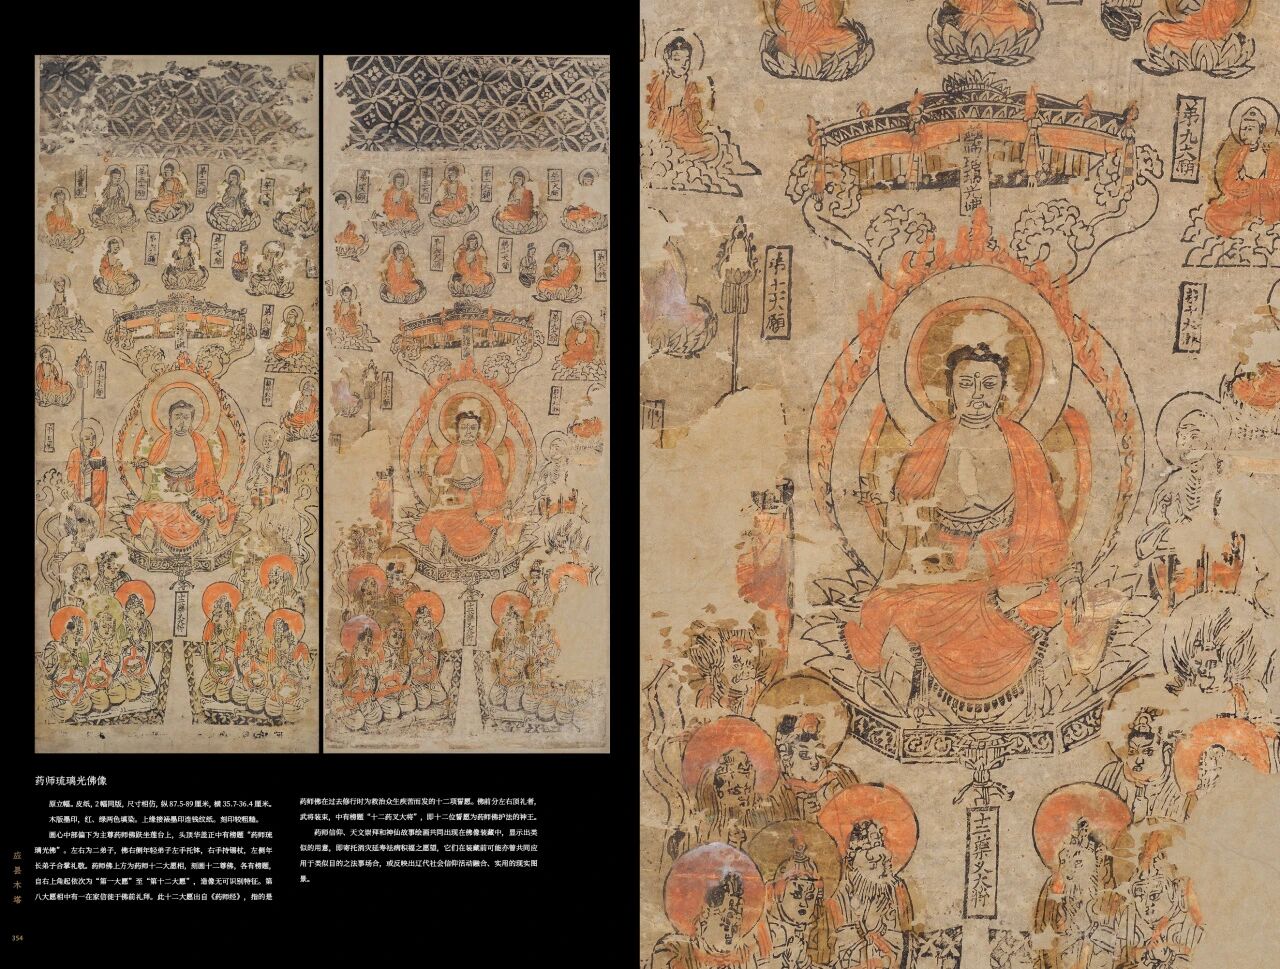 药师琉璃光佛像
原立幅。皮纸，2幅同版，尺寸相仿，纵87.5-89厘米，横35.7-36.4厘米。
木版墨印，红、绿两色填染。上缘接裱墨印连钱纹纸。刻印较粗糙。
画心中部偏下为主尊药师佛趺坐莲台上，头顶华盖正中有榜题“药师琉
璃光佛”。左右为二弟子，佛右侧年轻弟子左手托钵，右手持锡杖，左侧年
长弟子合掌礼敬。药师佛上方为药师十二大愿相，刻画十二尊佛，各有榜题，
自右上角起依次为“第一大愿”至“第十二大愿”，造像无可识别特征。第
八大愿相中有一在家信徒于佛前礼拜。此十二大愿出自《药师经》，指的是
药师佛在过去修行时为救治众生疾苦而发的十二项誓愿。佛前分左右顶礼者，
武将装束，中有榜题“十二药叉大将”，即十二位誓愿为药师佛护法的神王。
药师信仰、天文崇拜和神仙故事绘画共同出现在佛像装藏中，显示出类
似的用意，即寄托消灾延寿祛病积福之愿望，它们在装藏前可能亦曾共同应
用于类似目的之法事场合，或反映出辽代社会信仰活动融合、实用的现实图
景。
应县木塔
354
第九大願
第十二願
十二藥叉大將